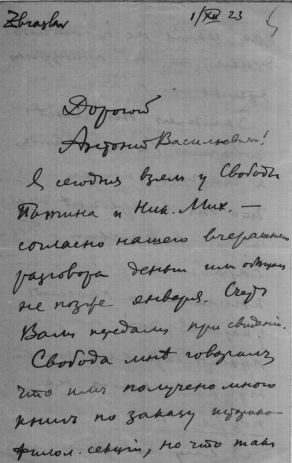 Zbraslav 1/XII 23
Дорогой
Антоний Васильевич!
Я сегодня взял у Свободы
Пажина и Ник. Мих. —
согласно нашего вчерашнего
разговора деньги
не позже января. Счет
Вам передам при свиданіи.
Свобода мнѣ говорилъ
что имъ получено много
книгъ по заказу
филол. секціи, но что там